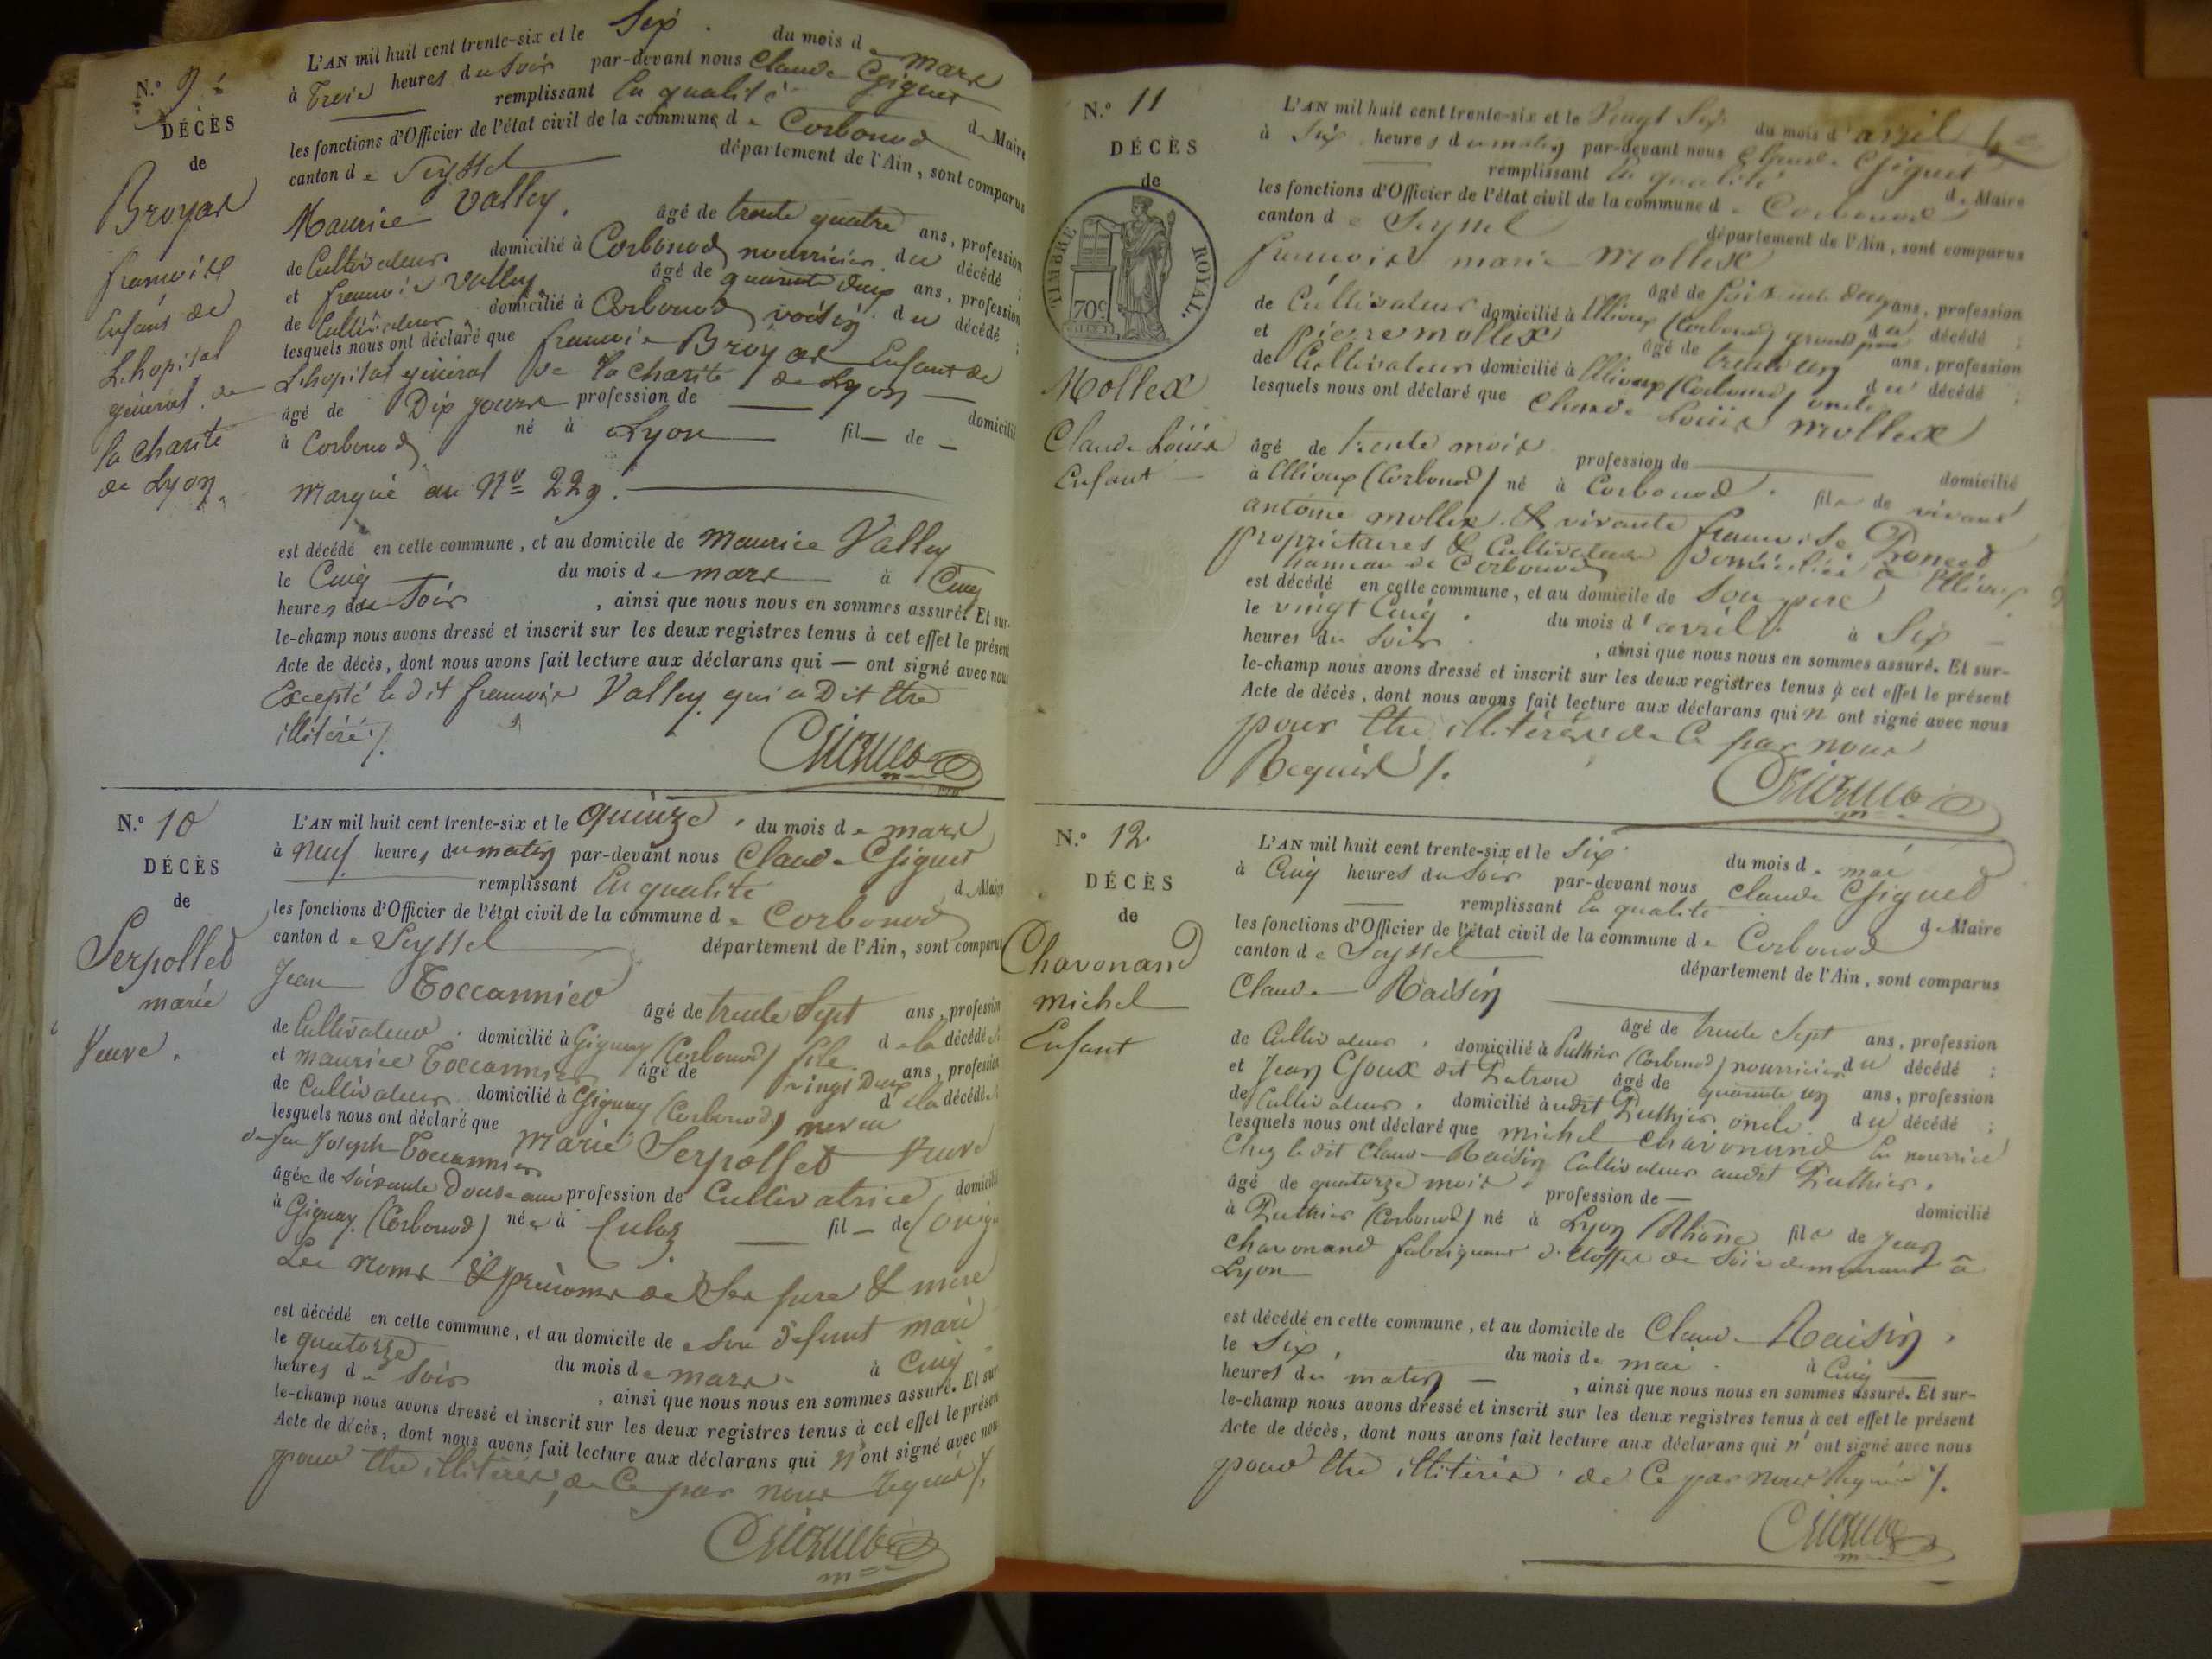 N.° 9.
DÉCÈS
de
Broyar
francoise
Enfant de
L'hopital
général de
la charité
de Lyon
L'AN mil huit cent trente-six et le Six du mois de mars
à Trois heures du Soir par-devant nous Claude Gignet
remplissant En qualité de Maire
les fonctions d'Officier de l'état civil de la commune de Corbonod
canton de Seyssel département de l'Ain, sont comparus
Maurice Valley, âgé de trente quatre ans, profession
de Cultivateur domicilié à Corbonod nourricier du décédé ;
et francois Valley âgé de quarante deux ans, profession
de Cultivateur domicilié à Corbonod voisin du décédé ;
lesquels nous ont déclaré que francoise Broyar Enfant de
L'hopital général de la charité de Lyon
âgé de Dix jours profession de domicilié
à Corbonod né à Lyon fil de
marqué au N° 229.
est décédé en cette commune, et au domicile de maurice Valley
le Cinq du mois de mars à Cinq
heures du Soir , ainsi que nous nous en sommes assuré. Et sur-
le-champ nous avons dressé et inscrit sur les deux registres tenus à cet effet le présent
Acte de décès, dont nous avons fait lecture aux déclarans qui — ont signé avec nous
Excepté le dit francois Valley qui a Dit Etre
illitéré ./.
N.° 10
DÉCÈS
de
Serpollet
marie
Veuve.
L'AN mil huit cent trente-six et le quinze du mois de mars
à neuf heures du matin par-devant nous Claude Gignet
remplissant En qualité de Maire
les fonctions d'Officier de l'état civil de la commune de Corbonod
canton de Seyssel département de l'Ain, sont comparus
Jean Toccannier âgé de trente Sept ans, profession
de Cultivateur domicilié à Gignay (Corbonod) fils de la décédé
et maurice Toccannier âgé de vingt Deux ans, profession
de Cultivateur domicilié à Gignay (Corbonod) neveu de la décédé
lesquels nous ont déclaré que marie Serpollet Veuve
de feu Joseph Toccannier
âgée de soixante Douse ans profession de Cultivatrice domicilié
à Gignay (Corbonod) née à Culoz fil — de (on ign
Les noms & prénoms de Ses pere & mere
est décédé en cette commune, et au domicile de Son défunt mari
le quatorze du mois de mars à Cinq
heures du Soir , ainsi que nous nous en sommes assuré. Et sur
le-champ nous avons dressé et inscrit sur les deux registres tenus à cet effet le présen
Acte de décès, dont nous avons fait lecture aux déclarans qui n'ont signé avec nou
pour Etre illitérés, de Ce par nous Requis ./.
N.° 11
DÉCÈS
de
TIMBRE ROYAL.
70c
Mollex
Claude Louis
Enfant
L'AN mil huit cent trente-six et le Vingt Six du mois d'avril
à Six heures du matin par-devant nous Claude Gignet
remplissant En qualité de Maire
les fonctions d'Officier de l'état civil de la commune de Corbonod
canton de Seyssel département de l'Ain, sont comparus
francois marie Mollex
âgé de soixante deux ans, profession
de Cultivateur domicilié à Ellioux (Corbonod) grand pere du décédé ;
et pierre mollex âgé de trente un ans, profession
de Cultivateur domicilié à Ellioux (Corbonod) oncle du décédé ;
lesquels nous ont déclaré que Claude Louis Mollex
âgé de trente mois profession de domicilié
à Ellioux (Corbonod) né à Corbonod. fils de vivant
antoine mollex. & vivante francoise Poncet
propriétaires & Cultivateurs Domiciliés à Ellioux
hameau de Corbonod
est décédé en cette commune, et au domicile de Son pere
le vingt Cinq du mois d'avril à Six
heures du Soir , ainsi que nous nous en sommes assuré. Et sur-
le-champ nous avons dressé et inscrit sur les deux registres tenus à cet effet le présent
Acte de décès, dont nous avons fait lecture aux déclarans qui n'ont signé avec nous
pour Etre illitérés de Ce par nous
Requis ./.
N.° 12.
DÉCÈS
de
Chavonand
michel
Enfant
L'AN mil huit cent trente-six et le Six du mois de mai
à Cinq heures du Soir par-devant nous Claude Gignet
remplissant En qualité de Maire
les fonctions d'Officier de l'état civil de la commune de Corbonod
canton de Seyssel département de l'Ain, sont comparus
Claude Raisin
âgé de trente Sept ans, profession
de Cultivateur domicilié à Puthier (Corbonod) nourricier du décédé ;
et Jean Goux dit Patron âgé de quarante un ans, profession
de Cultivateur domicilié audit Puthier, oncle du décédé ;
lesquels nous ont déclaré que michel Chavonand En nourrice
Chez le dit Claude Raisin Cultivateur audit Puthier.
âgé de quatorze mois profession de — domicilié
à Puthier (Corbonod) né à Lyon (Rhône fils de Jean
Chavonand fabriquant d'Etoffes de Soie demeurant à
Lyon
est décédé en cette commune, et au domicile de Claude Raisin.
le Six du mois de mai à Cinq
heures du matin — , ainsi que nous nous en sommes assuré. Et sur-
le-champ nous avons dressé et inscrit sur les deux registres tenus à cet effet le présent
Acte de décès, dont nous avons fait lecture aux déclarans qui n'ont signé avec nous
pour Etre illitérés. de Ce par nous Requis ./.